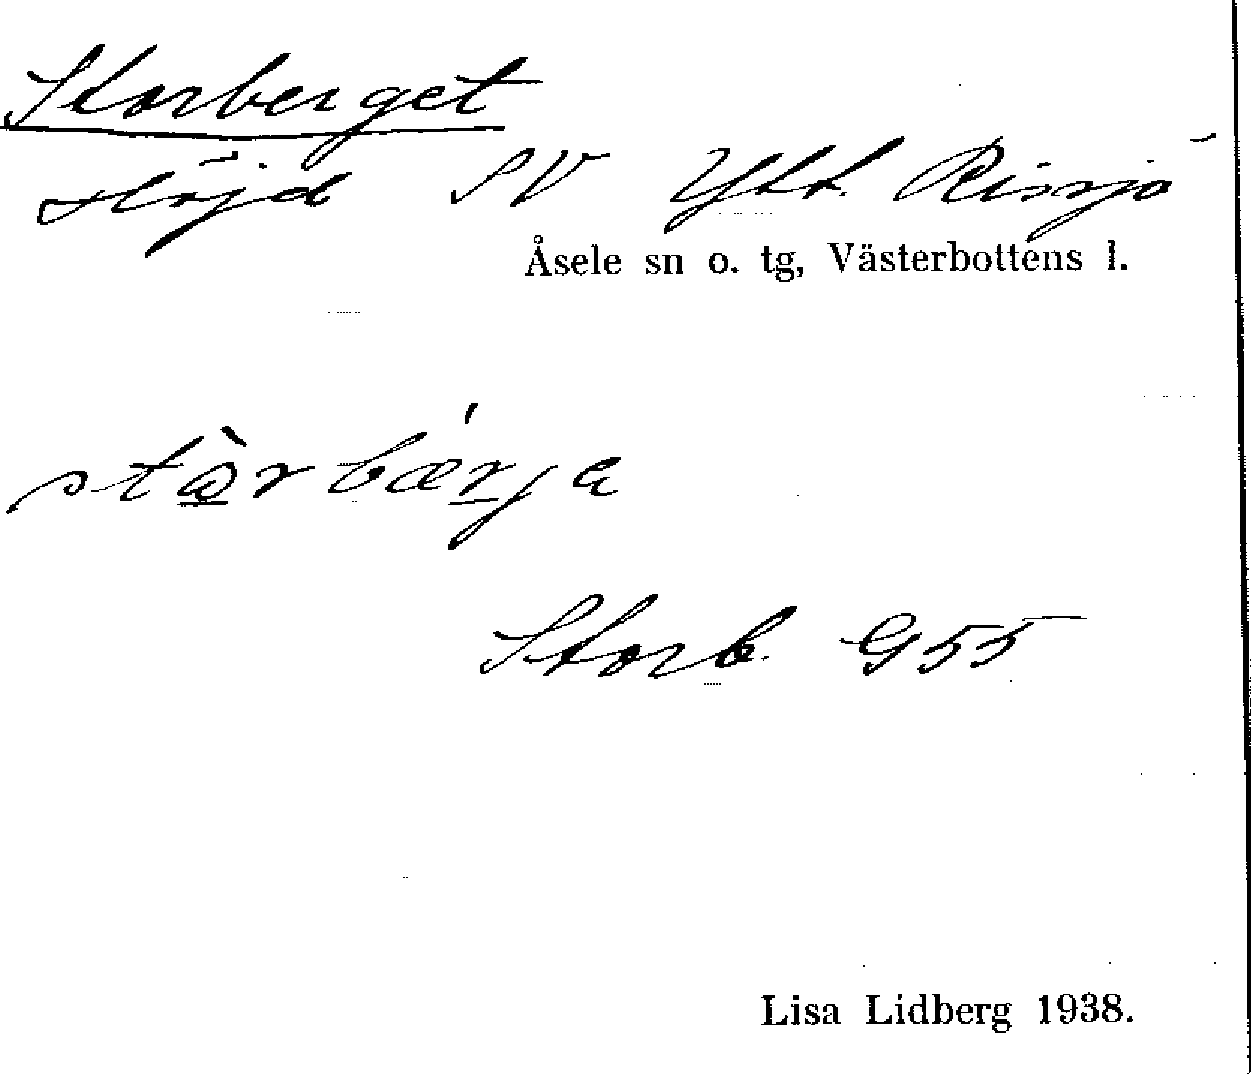 Storberget
Höjd SV Ytt. Rissjö
Åsele sn o. tg, Västerbottens l.
Storb. G55
Lisa Lidberg 1938.